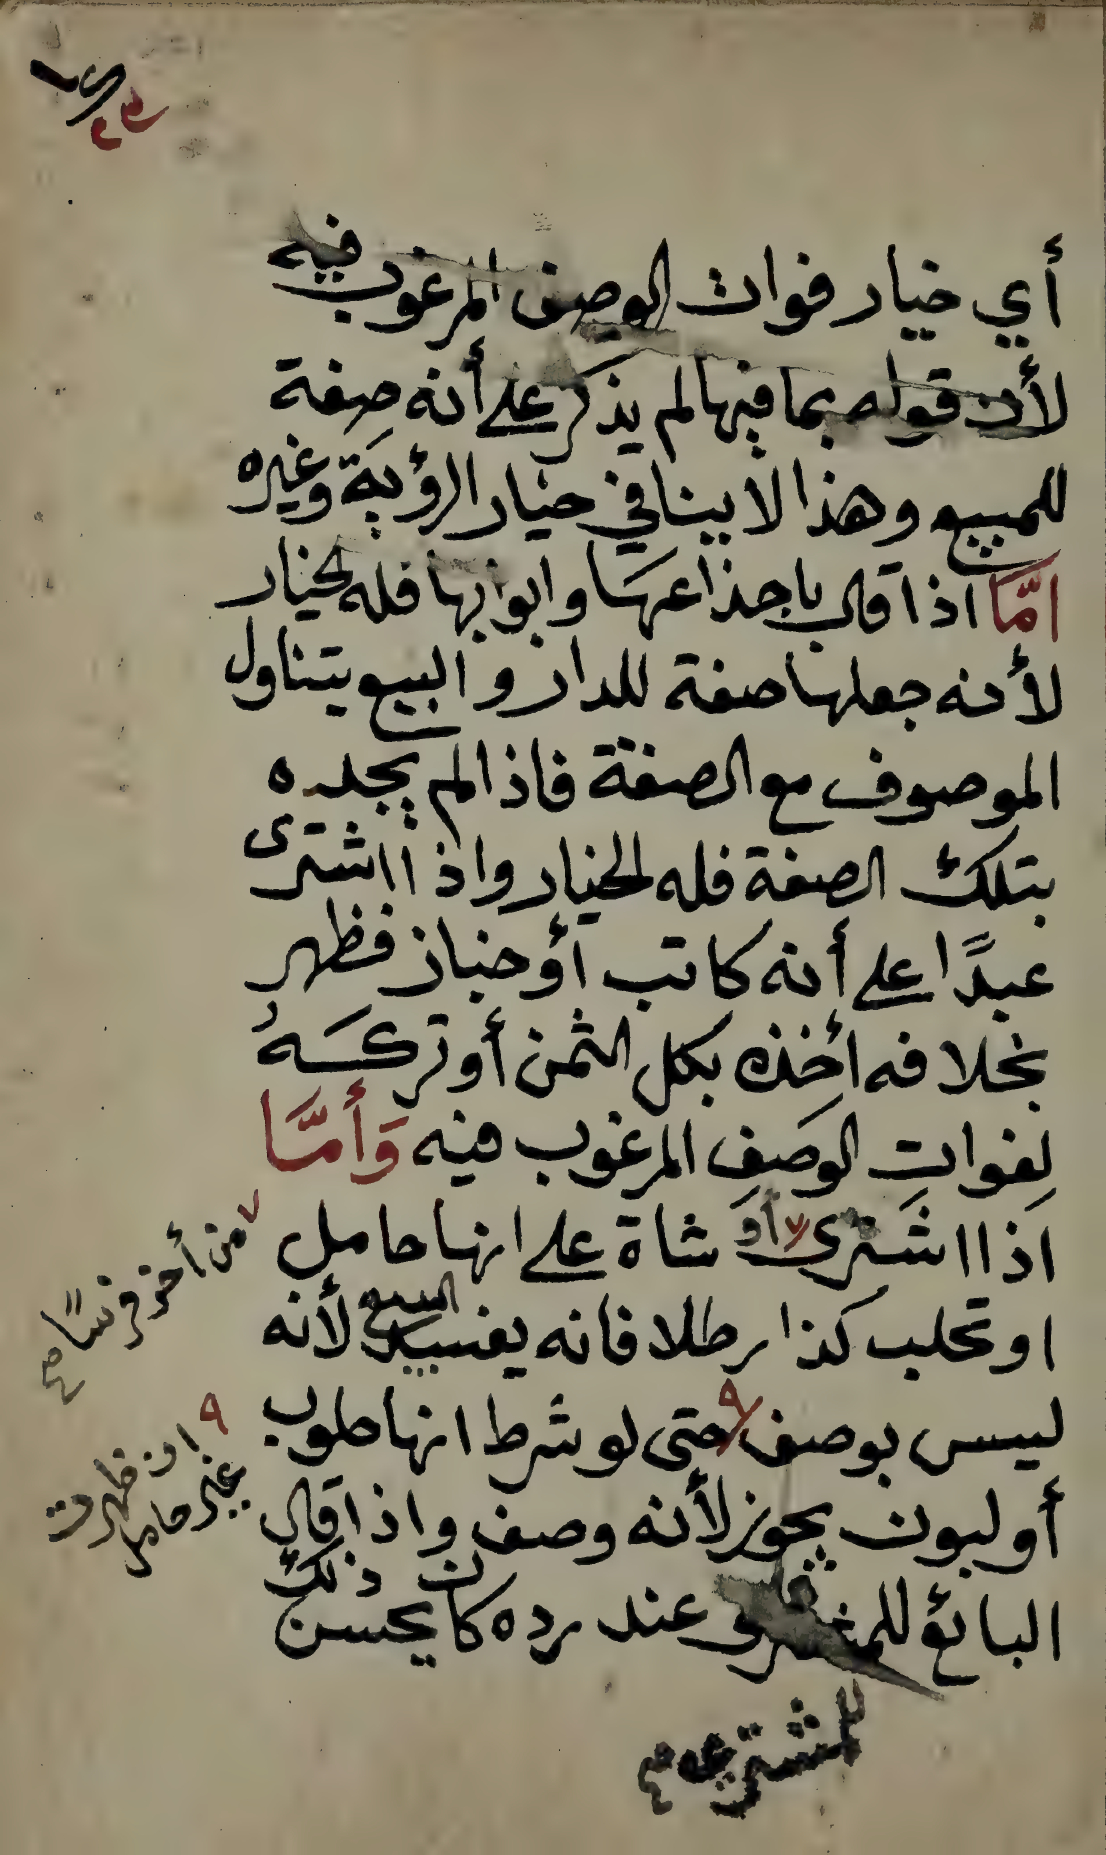 أي خيار فوات الوصف المرغوب فيه
لأن قوله بما فيها لم يذكر على أنه صفة
للمبيع وهذا لا ينافي خيار الرؤية وغيره
امّا اذا قال باجذاعها وابوابها فله الخيار
لأنه جعلها صفة للدار والبيع يتناول
الموصوف مع الصفة فاذا لم يجده
بتلك الصفة فله الخيار واذا اشترى
عبدًا على أنه كاتب أو خباز فظهر
بخلافه أخذه بكل الثمن أو تركه
لفوات الوصف المرغوب فيه وأمّا
اذا اشترى أو ٧ شاة على انها حامل
او تحلب كذا رطلا فانه يفسد البيع لأنه
ليس بوصف ٩ حتى لو شرط انها حلوب
أو لبون يجوز لأنه وصف واذا قال
البائع للمشتري عند رده كان يحسن ذلك
٧ من أخر فرسًا صح
٩ اذ ظهرت
غير حامل
للمشتري صح